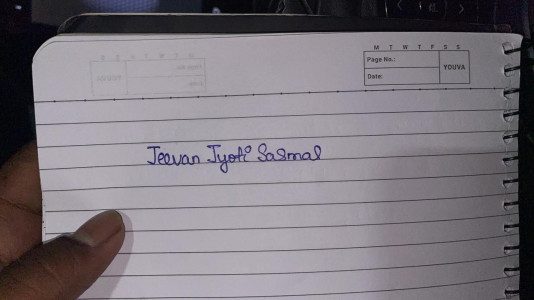 M T W T F S S
Page No.:
YOUVA
Date:
Jeevan Jyoti Sasmal